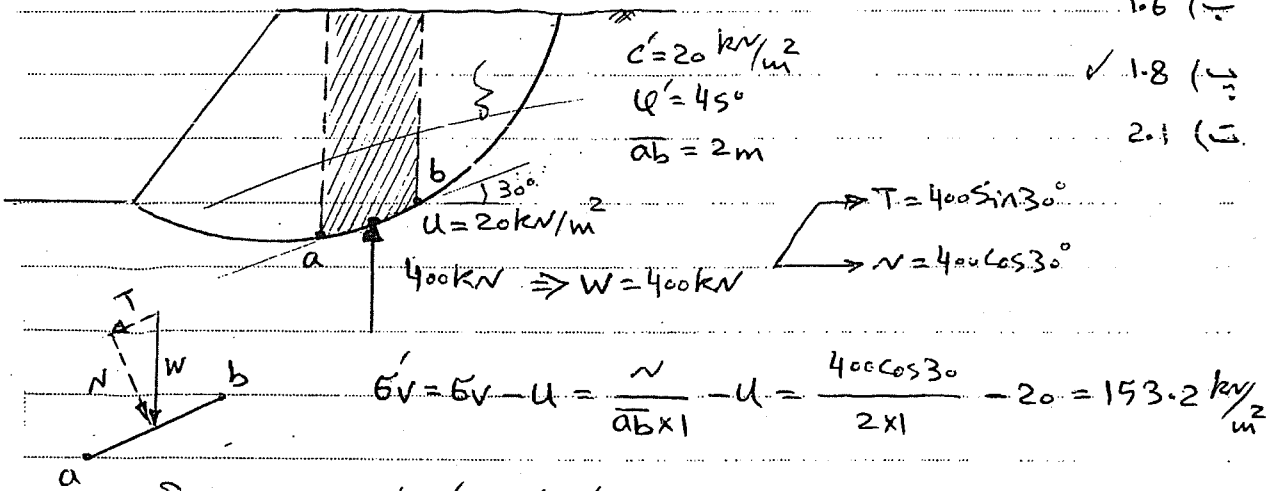 ب) 1.6
c' = 20 kN/m²
φ' = 45°
ab = 2m
پ) 1.8 ✓
ت) 2.1
b
30°
u = 20 kN/m²
a
400 kN ⇒ W = 400 kN
T = 400 Sin 30°
N = 400 cos 30°
T
N
W
b
a
σ'v = σv - u = N / (ab × 1) - u = 400 cos 30 / (2 × 1) - 20 = 153.2 kN/m²